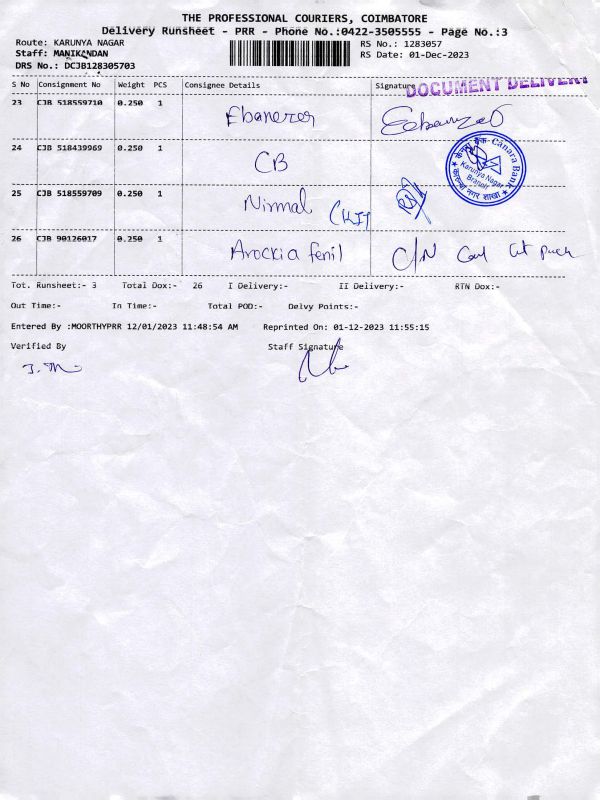 THE PROFESSIONAL COURIERS, COIMBATORE
Delivery Runsheet - PRR - Phone No.:0422-3505555 - Page No.:3
Route: KARUNYA NAGAR
RS No.: 1283057
Staff: MANIKANDAN
RS Date: 01-Dec-2023
DRS No.: DCJB128305703
S No Consignment No Weight PCS Consignee Details Signature
DOCUMENT DELIVERY
23 CJB 518559710 0.250 1 Ebanezer
24 CJB 518439969 0.250 1 CB
केनरा बैंक - Canara Bank
Karunya Nagar
Branch
25 CJB 518559709 0.250 1 Nirmal
26 CJB 90126017 0.250 1 Arockia fenil C/N
Tot. Runsheet:- 3 Total Dox:- 26 I Delivery:- II Delivery:- RTN Dox:-
Out Time:- In Time:- Total POD:- Delvy Points:-
Entered By :MOORTHYPRR 12/01/2023 11:48:54 AM Reprinted On: 01-12-2023 11:55:15
Verified By Staff Signature